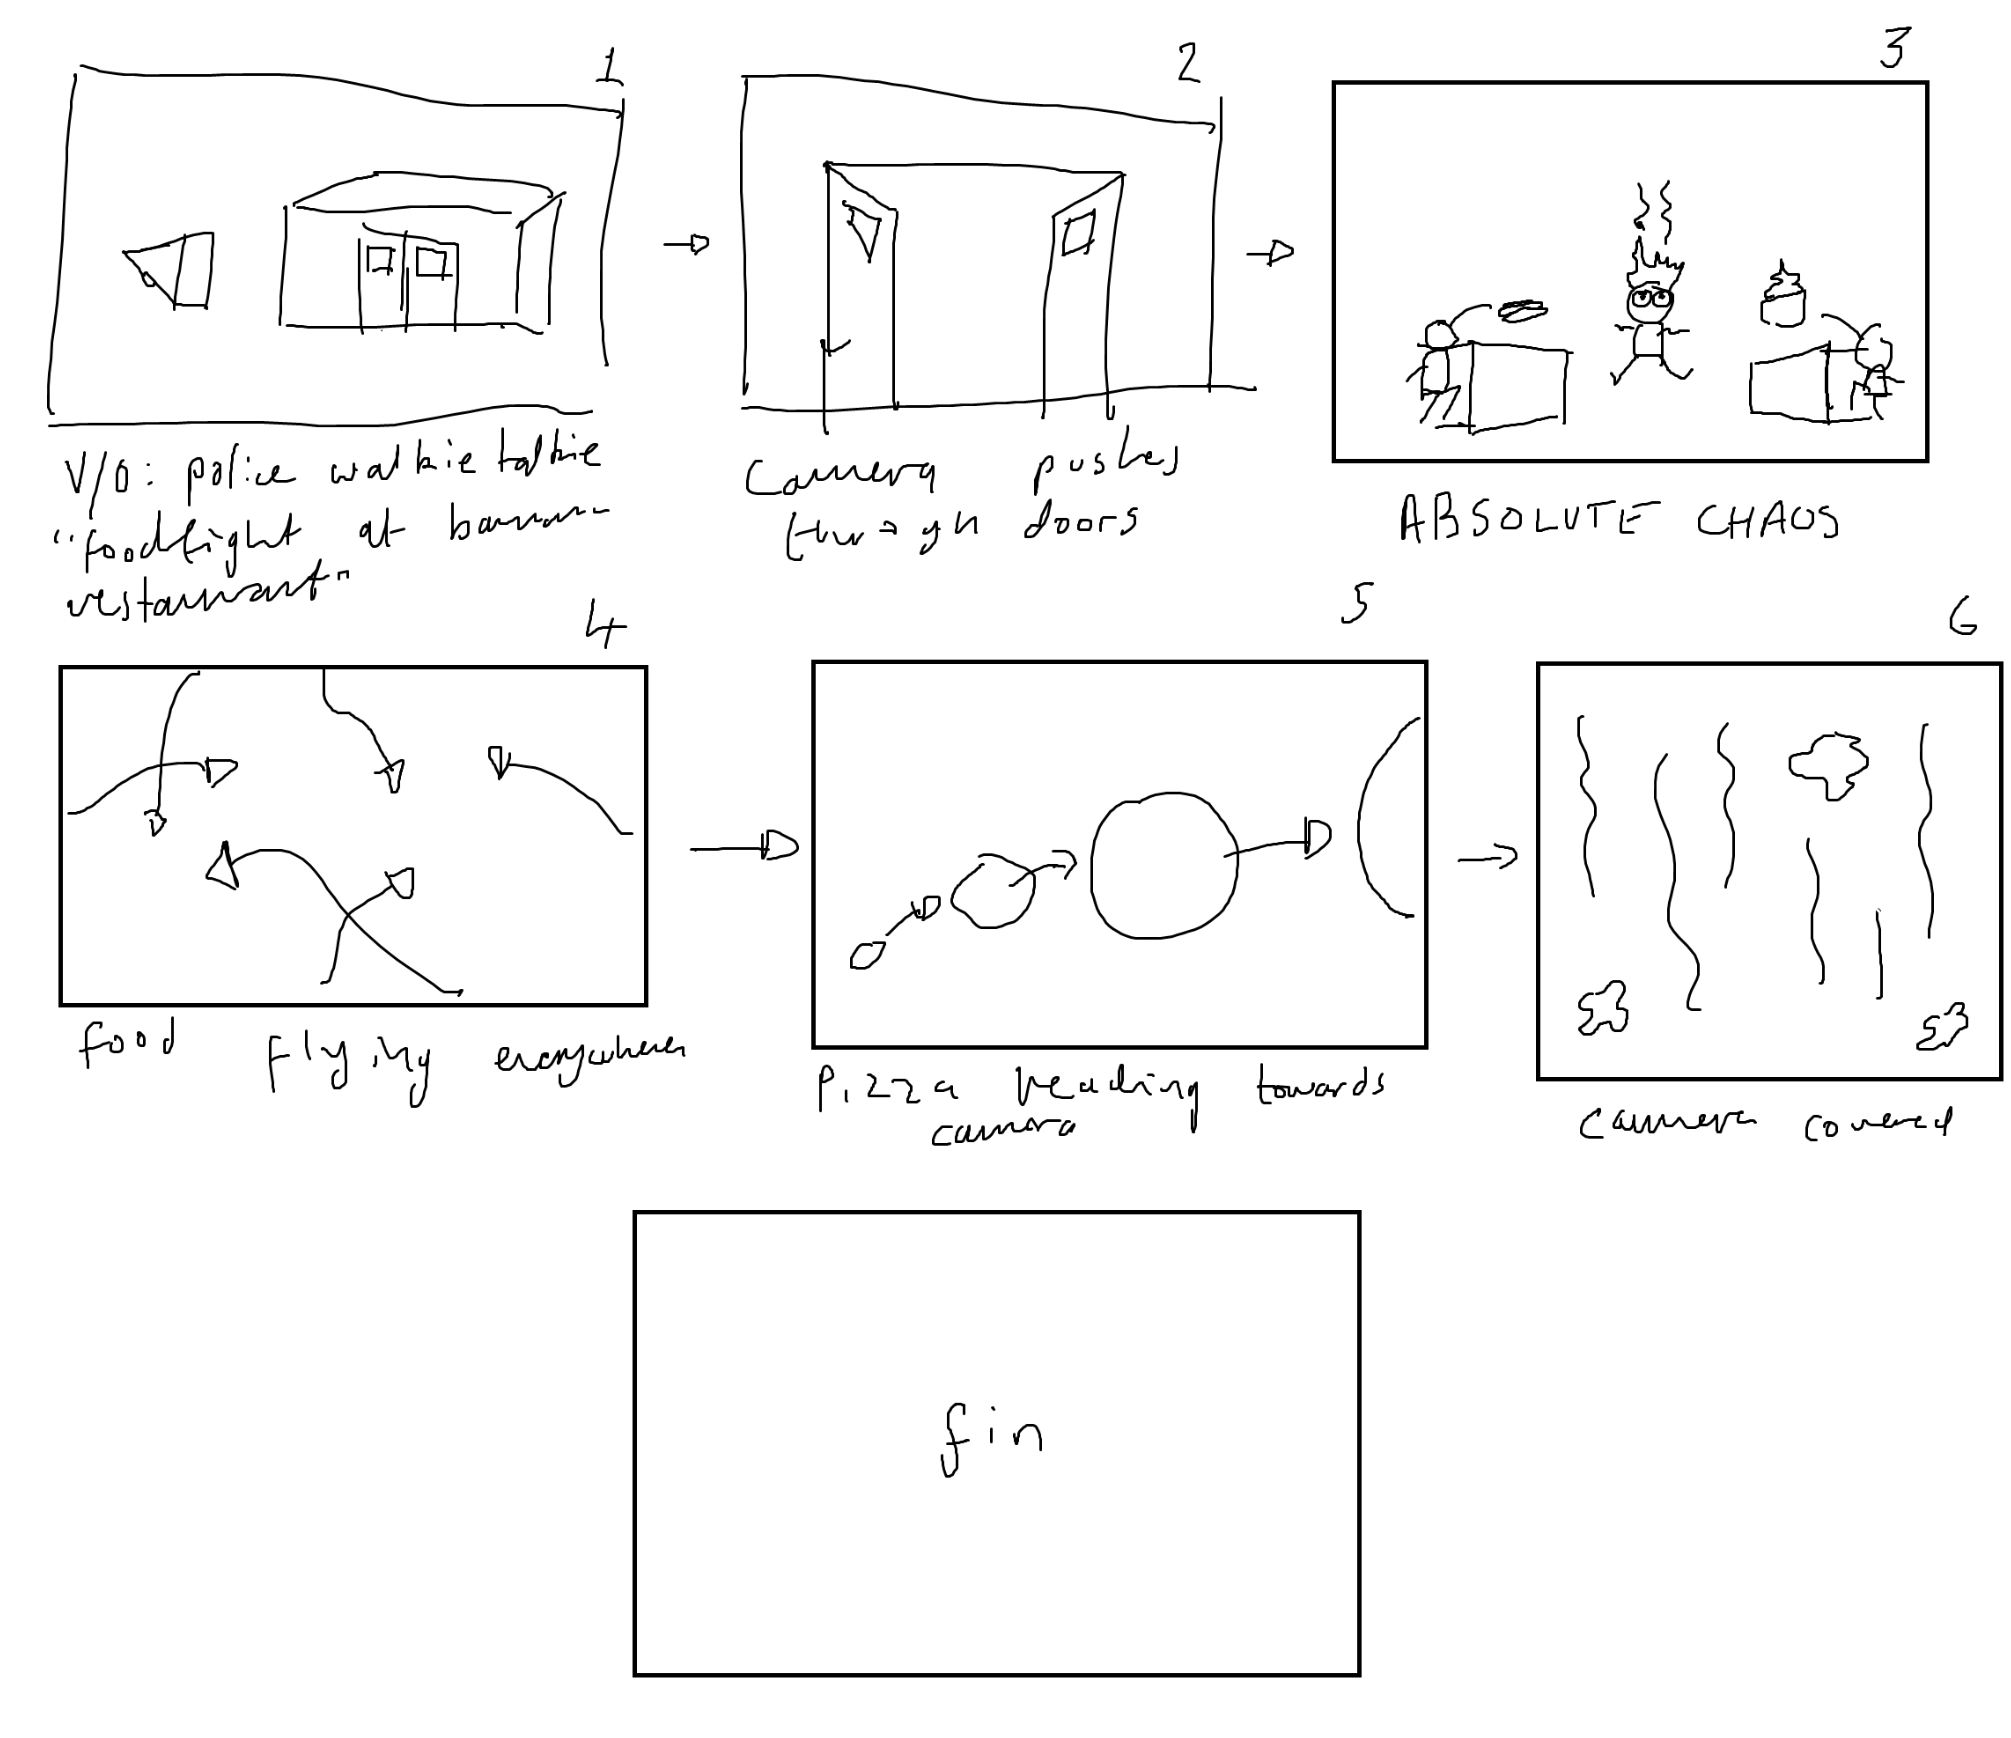 1
2
3
V/O: police walkie talkie
"foodfight at banana
restaurant"
Camera pushes
through doors
ABSOLUTE CHAOS
4
5
6
food flying everywhere
Pizza heading towards
camera
camera covered
fin